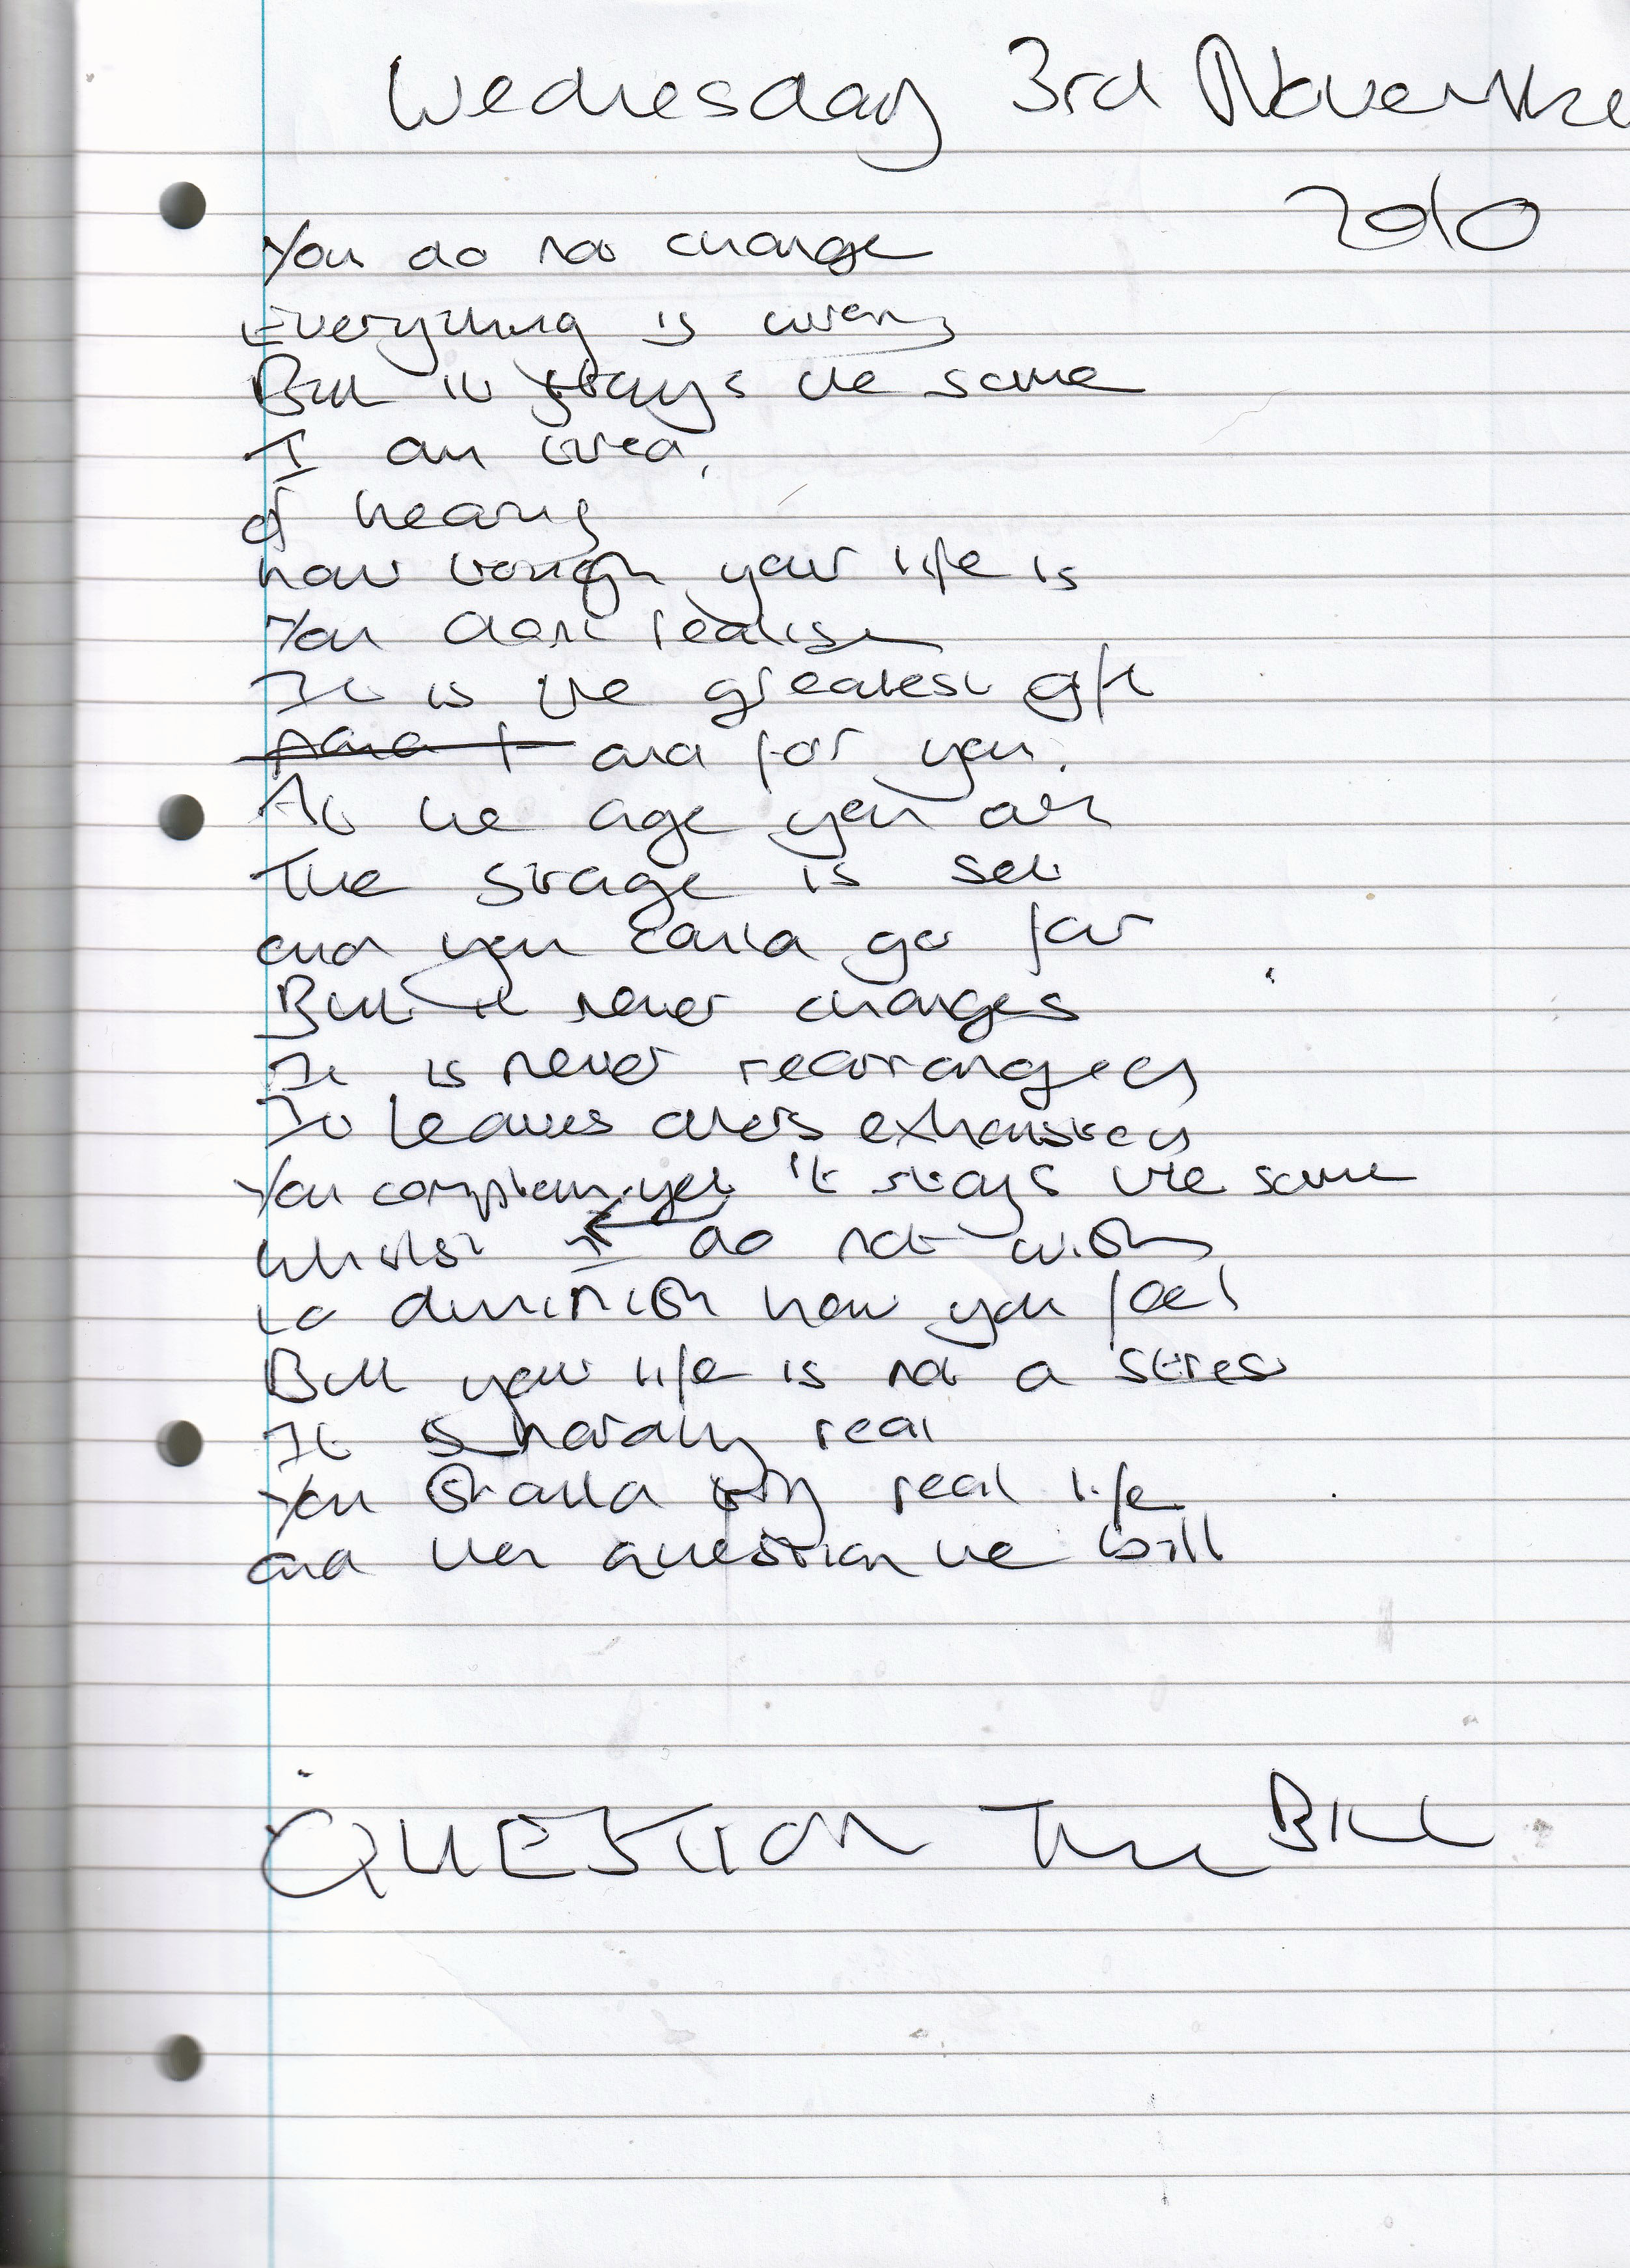 Wednesday 3rd November
2010
You do not change
Everything is wrong
But it stays the same
I am tired,
of hearing
how tough your life is
You dont realise
It is the greatest gift
and for you.
At the age you are
The stage is set
and you could go far
But it never changes
It is never rearranged
It leaves others exhausted
You complain yet it stays the same
Whilst I do not wish
to diminish how you feel
But your life is not a stress
It is hardly real
You should try real life
and then question the bill
QUESTION THE BILL